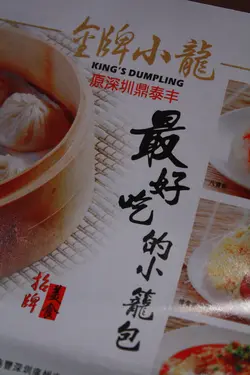 金牌小龍
KING'S DUMPLING
原深圳鼎泰丰
最好吃的小籠包
招牌
美食